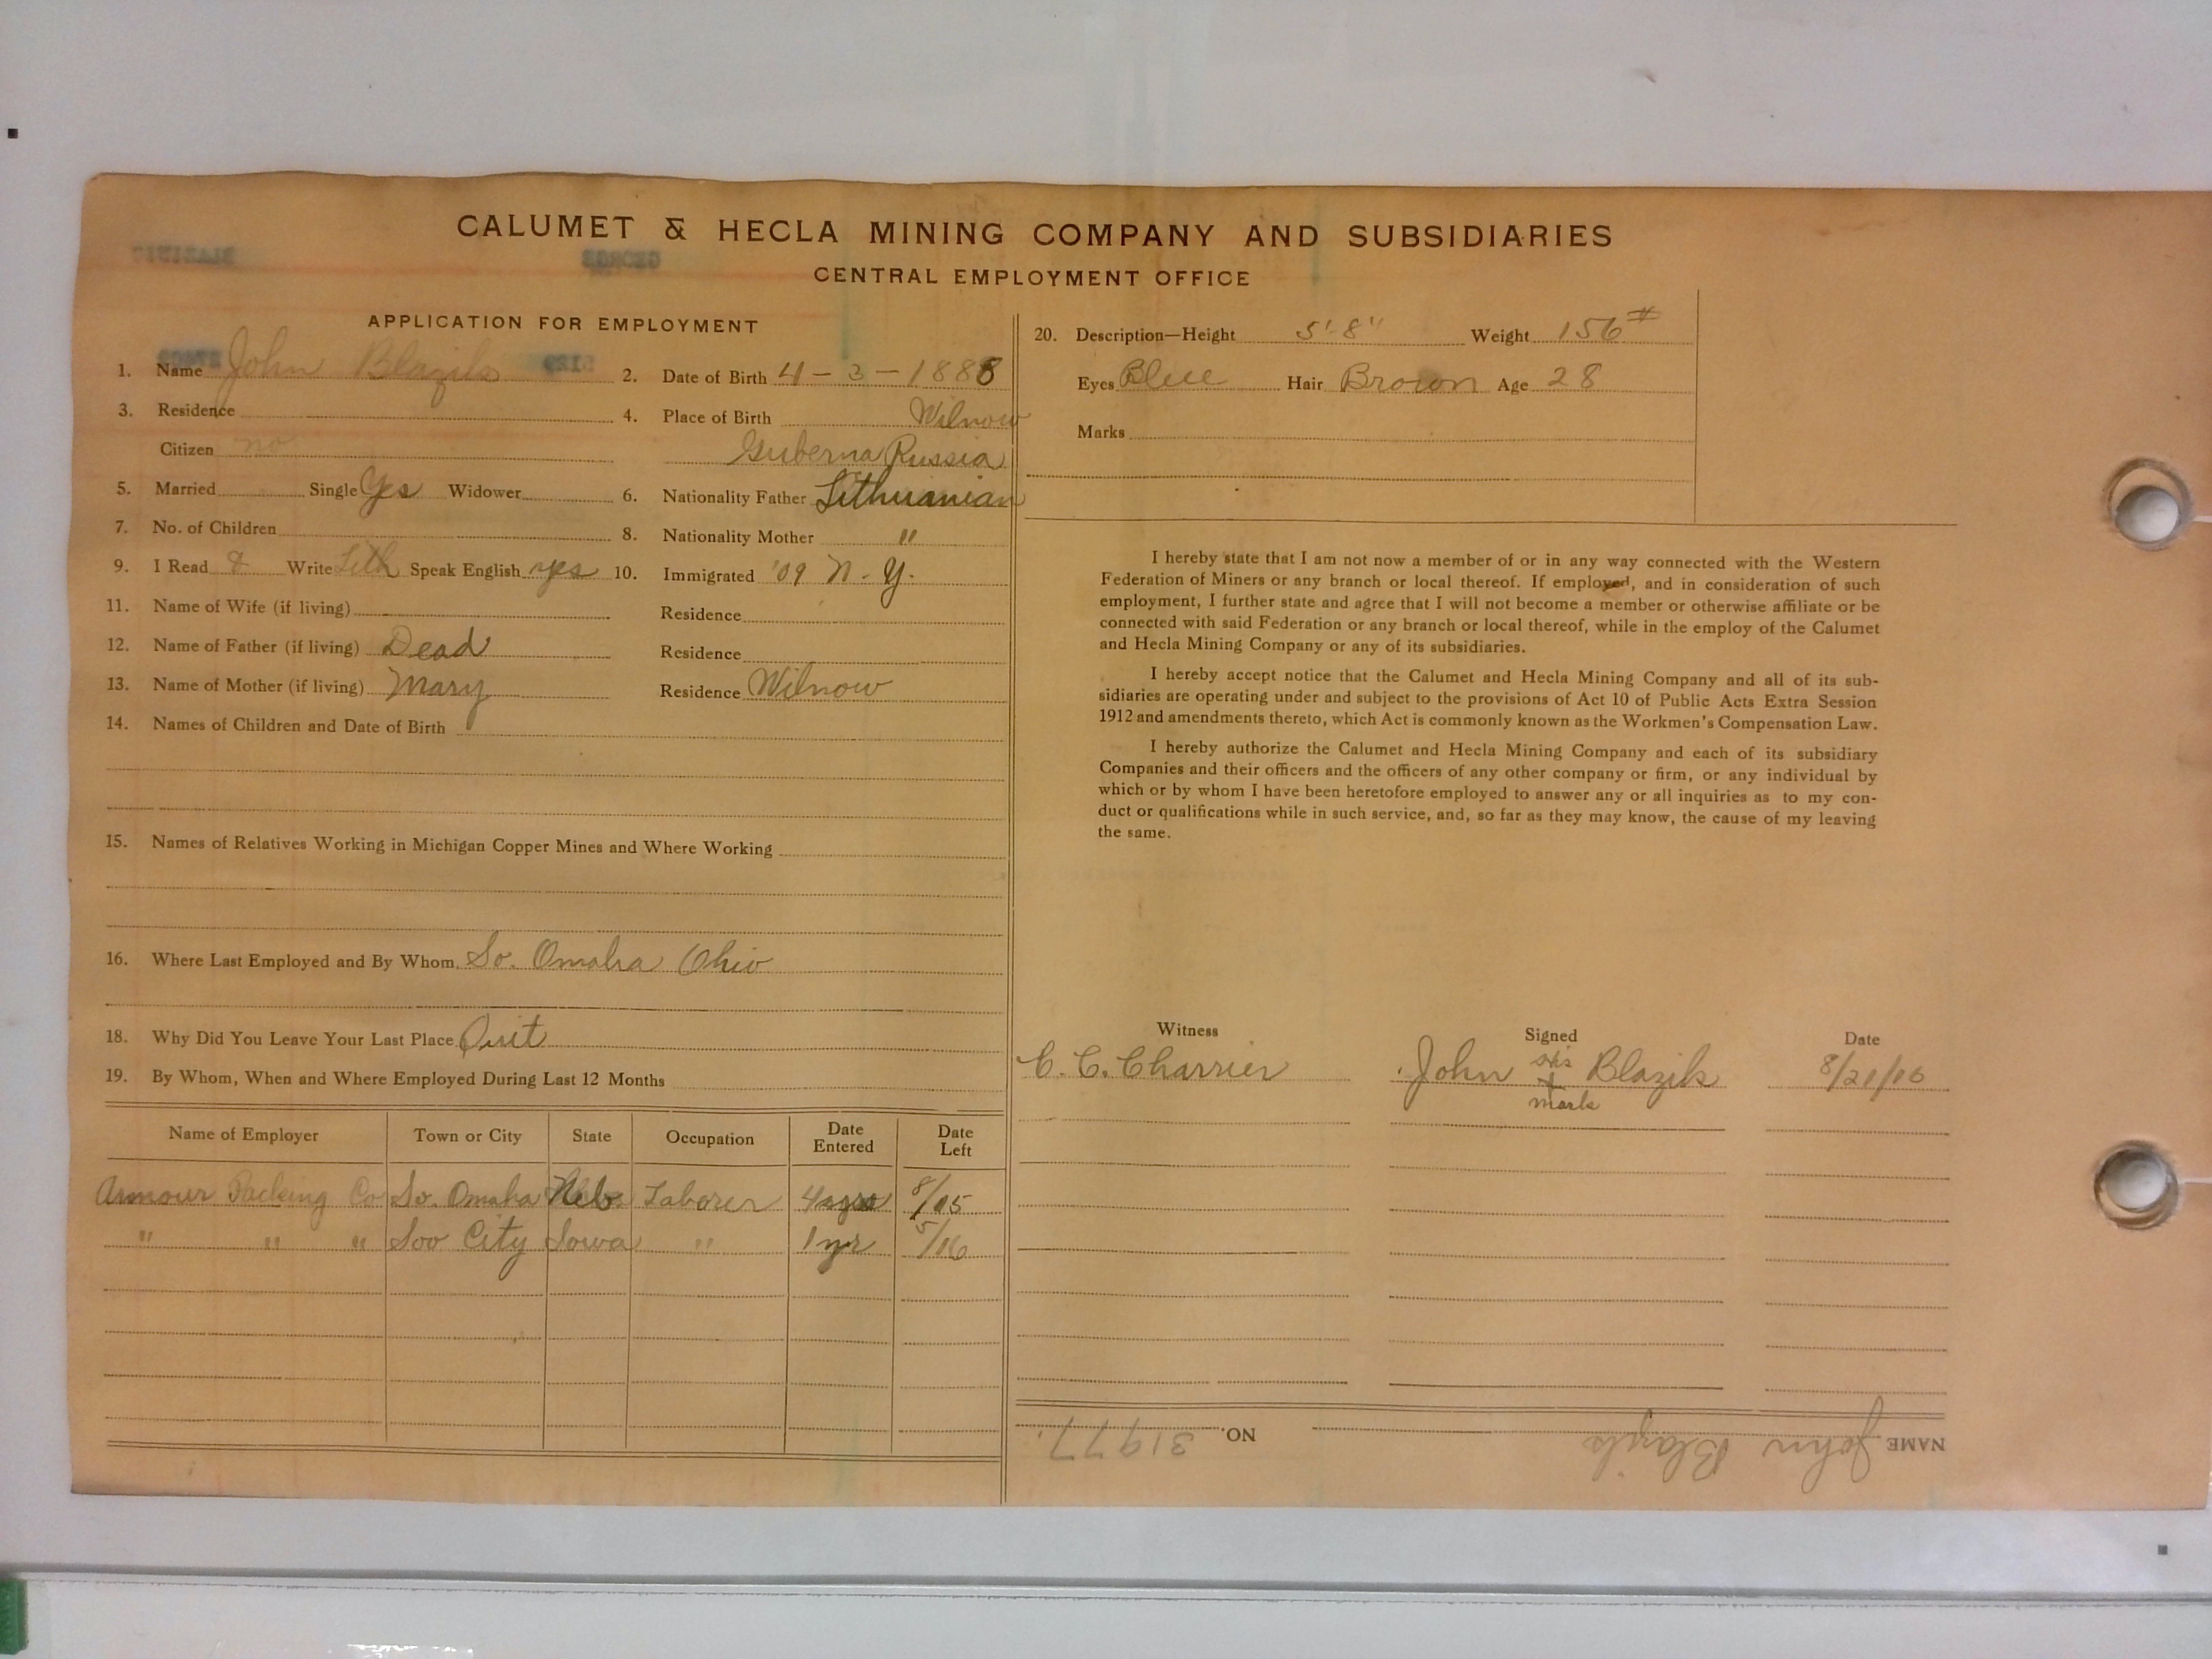 CALUMET & HECLA MINING COMPANY AND SUBSIDIARIES
CENTRAL EMPLOYMENT OFFICE
APPLICATION FOR EMPLOYMENT
1. Name John Blazik 2. Date of Birth 4-3-1888
3. Residence 4. Place of Birth Wilnow
Citizen no Guberna Russia
5. Married Single Yes Widower 6. Nationality Father Lithuanian
7. No. of Children 8. Nationality Mother "
9. I Read & Write Lith Speak English yes 10. Immigrated '09 N-Y.
11. Name of Wife (if living) Residence
12. Name of Father (if living) Dead Residence
13. Name of Mother (if living) Mary Residence Wilnow
14. Names of Children and Date of Birth
15. Names of Relatives Working in Michigan Copper Mines and Where Working
16. Where Last Employed and By Whom So. Omaha Ohio
18. Why Did You Leave Your Last Place Quit
19. By Whom, When and Where Employed During Last 12 Months
Name of Employer Town or City State Occupation Date Entered Date Left
Armour Packing Co So. Omaha Neb. Laborer 4 yrs 8/15
" " " Soo City Iowa " 1 yr 5/16
20. Description—Height 5'-8" Weight 156#
Eyes Blue Hair Brown Age 28
Marks
I hereby state that I am not now a member of or in any way connected with the Western
Federation of Miners or any branch or local thereof. If employed, and in consideration of such
employment, I further state and agree that I will not become a member or otherwise affiliate or be
connected with said Federation or any branch or local thereof, while in the employ of the Calumet
and Hecla Mining Company or any of its subsidiaries.
I hereby accept notice that the Calumet and Hecla Mining Company and all of its sub-
sidiaries are operating under and subject to the provisions of Act 10 of Public Acts Extra Session
1912 and amendments thereto, which Act is commonly known as the Workmen's Compensation Law.
I hereby authorize the Calumet and Hecla Mining Company and each of its subsidiary
Companies and their officers and the officers of any other company or firm, or any individual by
which or by whom I have been heretofore employed to answer any or all inquiries as to my con-
duct or qualifications while in such service, and, so far as they may know, the cause of my leaving
the same.
Witness Signed Date
C. C. Charrier John his x mark Blazik 8/21/16
NAME John Blazik NO. 31977